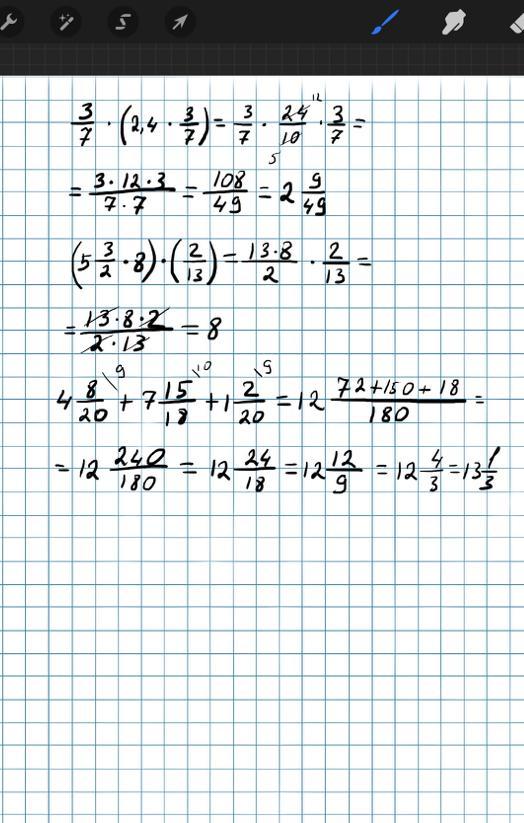 3/7 · (2,4 · 3/7) = 3/7 · 24/10 · 3/7 = 12 5
= 3·12·3/7·7 = 108/49 = 2 9/49
(5 3/2 · 8) · (2/13) = 13·8/2 · 2/13 =
= 13·8·2/2·13 = 8
4 8/20 \9 + 7 15/18 \10 + 1 2/20 \9 = 12 72+150+18/180 =
= 12 240/180 = 12 24/18 = 12 12/9 = 12 4/3 = 13 1/3